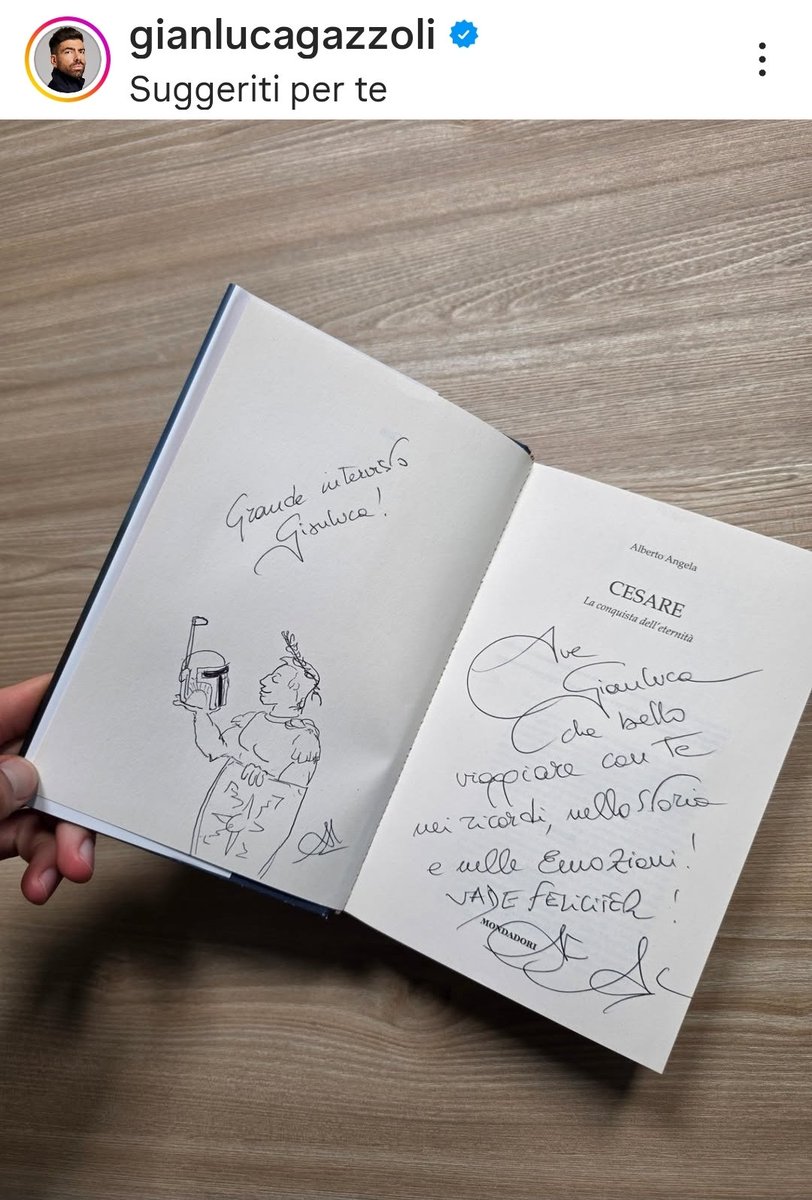 gianlucagazzoli
Suggeriti per te
Grande intervista
Gianluca!
Alberto Angela
CESARE
La conquista dell'eternità
Ave
Gianluca
che bello
viaggiare con Te
nei ricordi, nella Storia
e nelle Emozioni!
VADE FELICITER!
MONDADORI